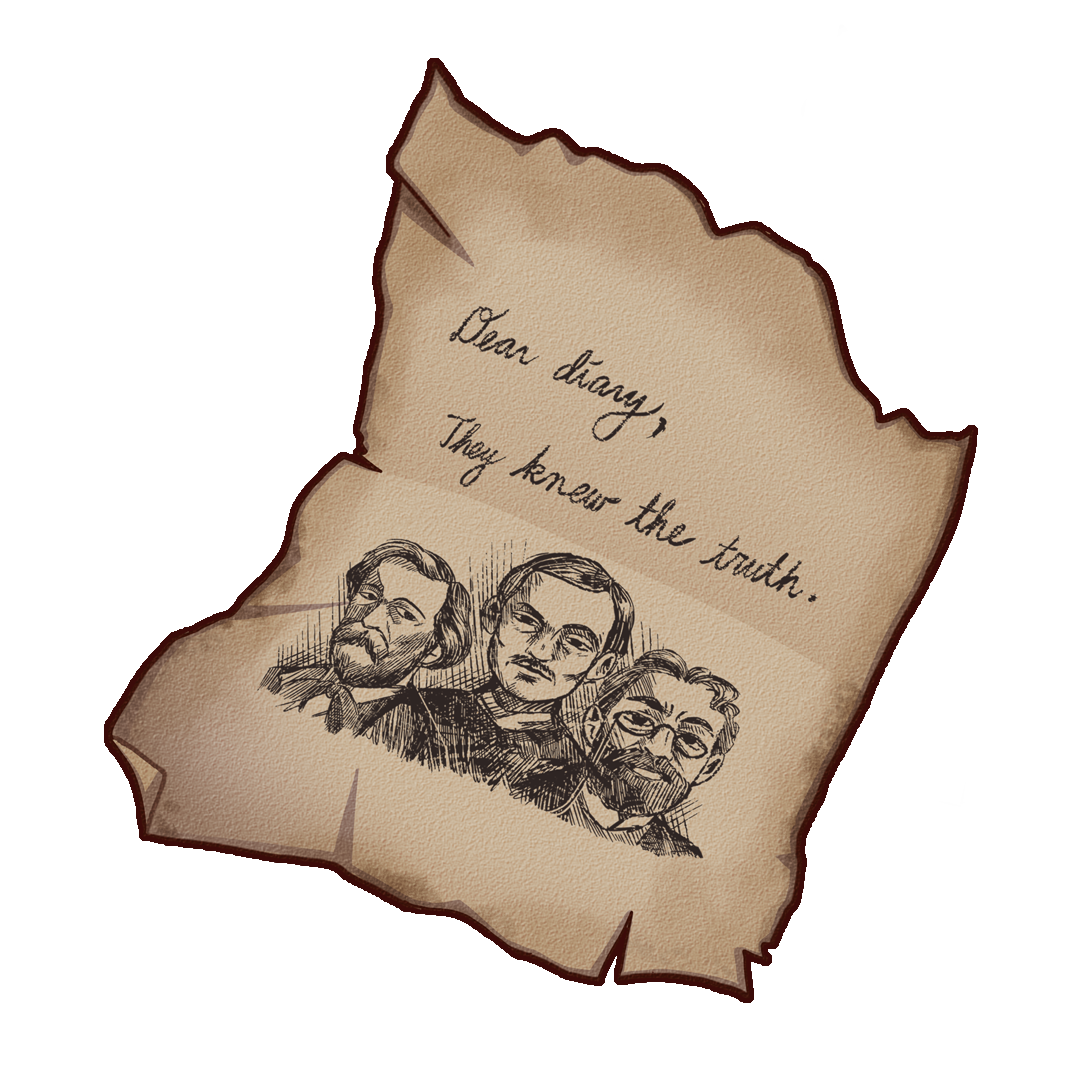 Dear diary,
They knew the truth.